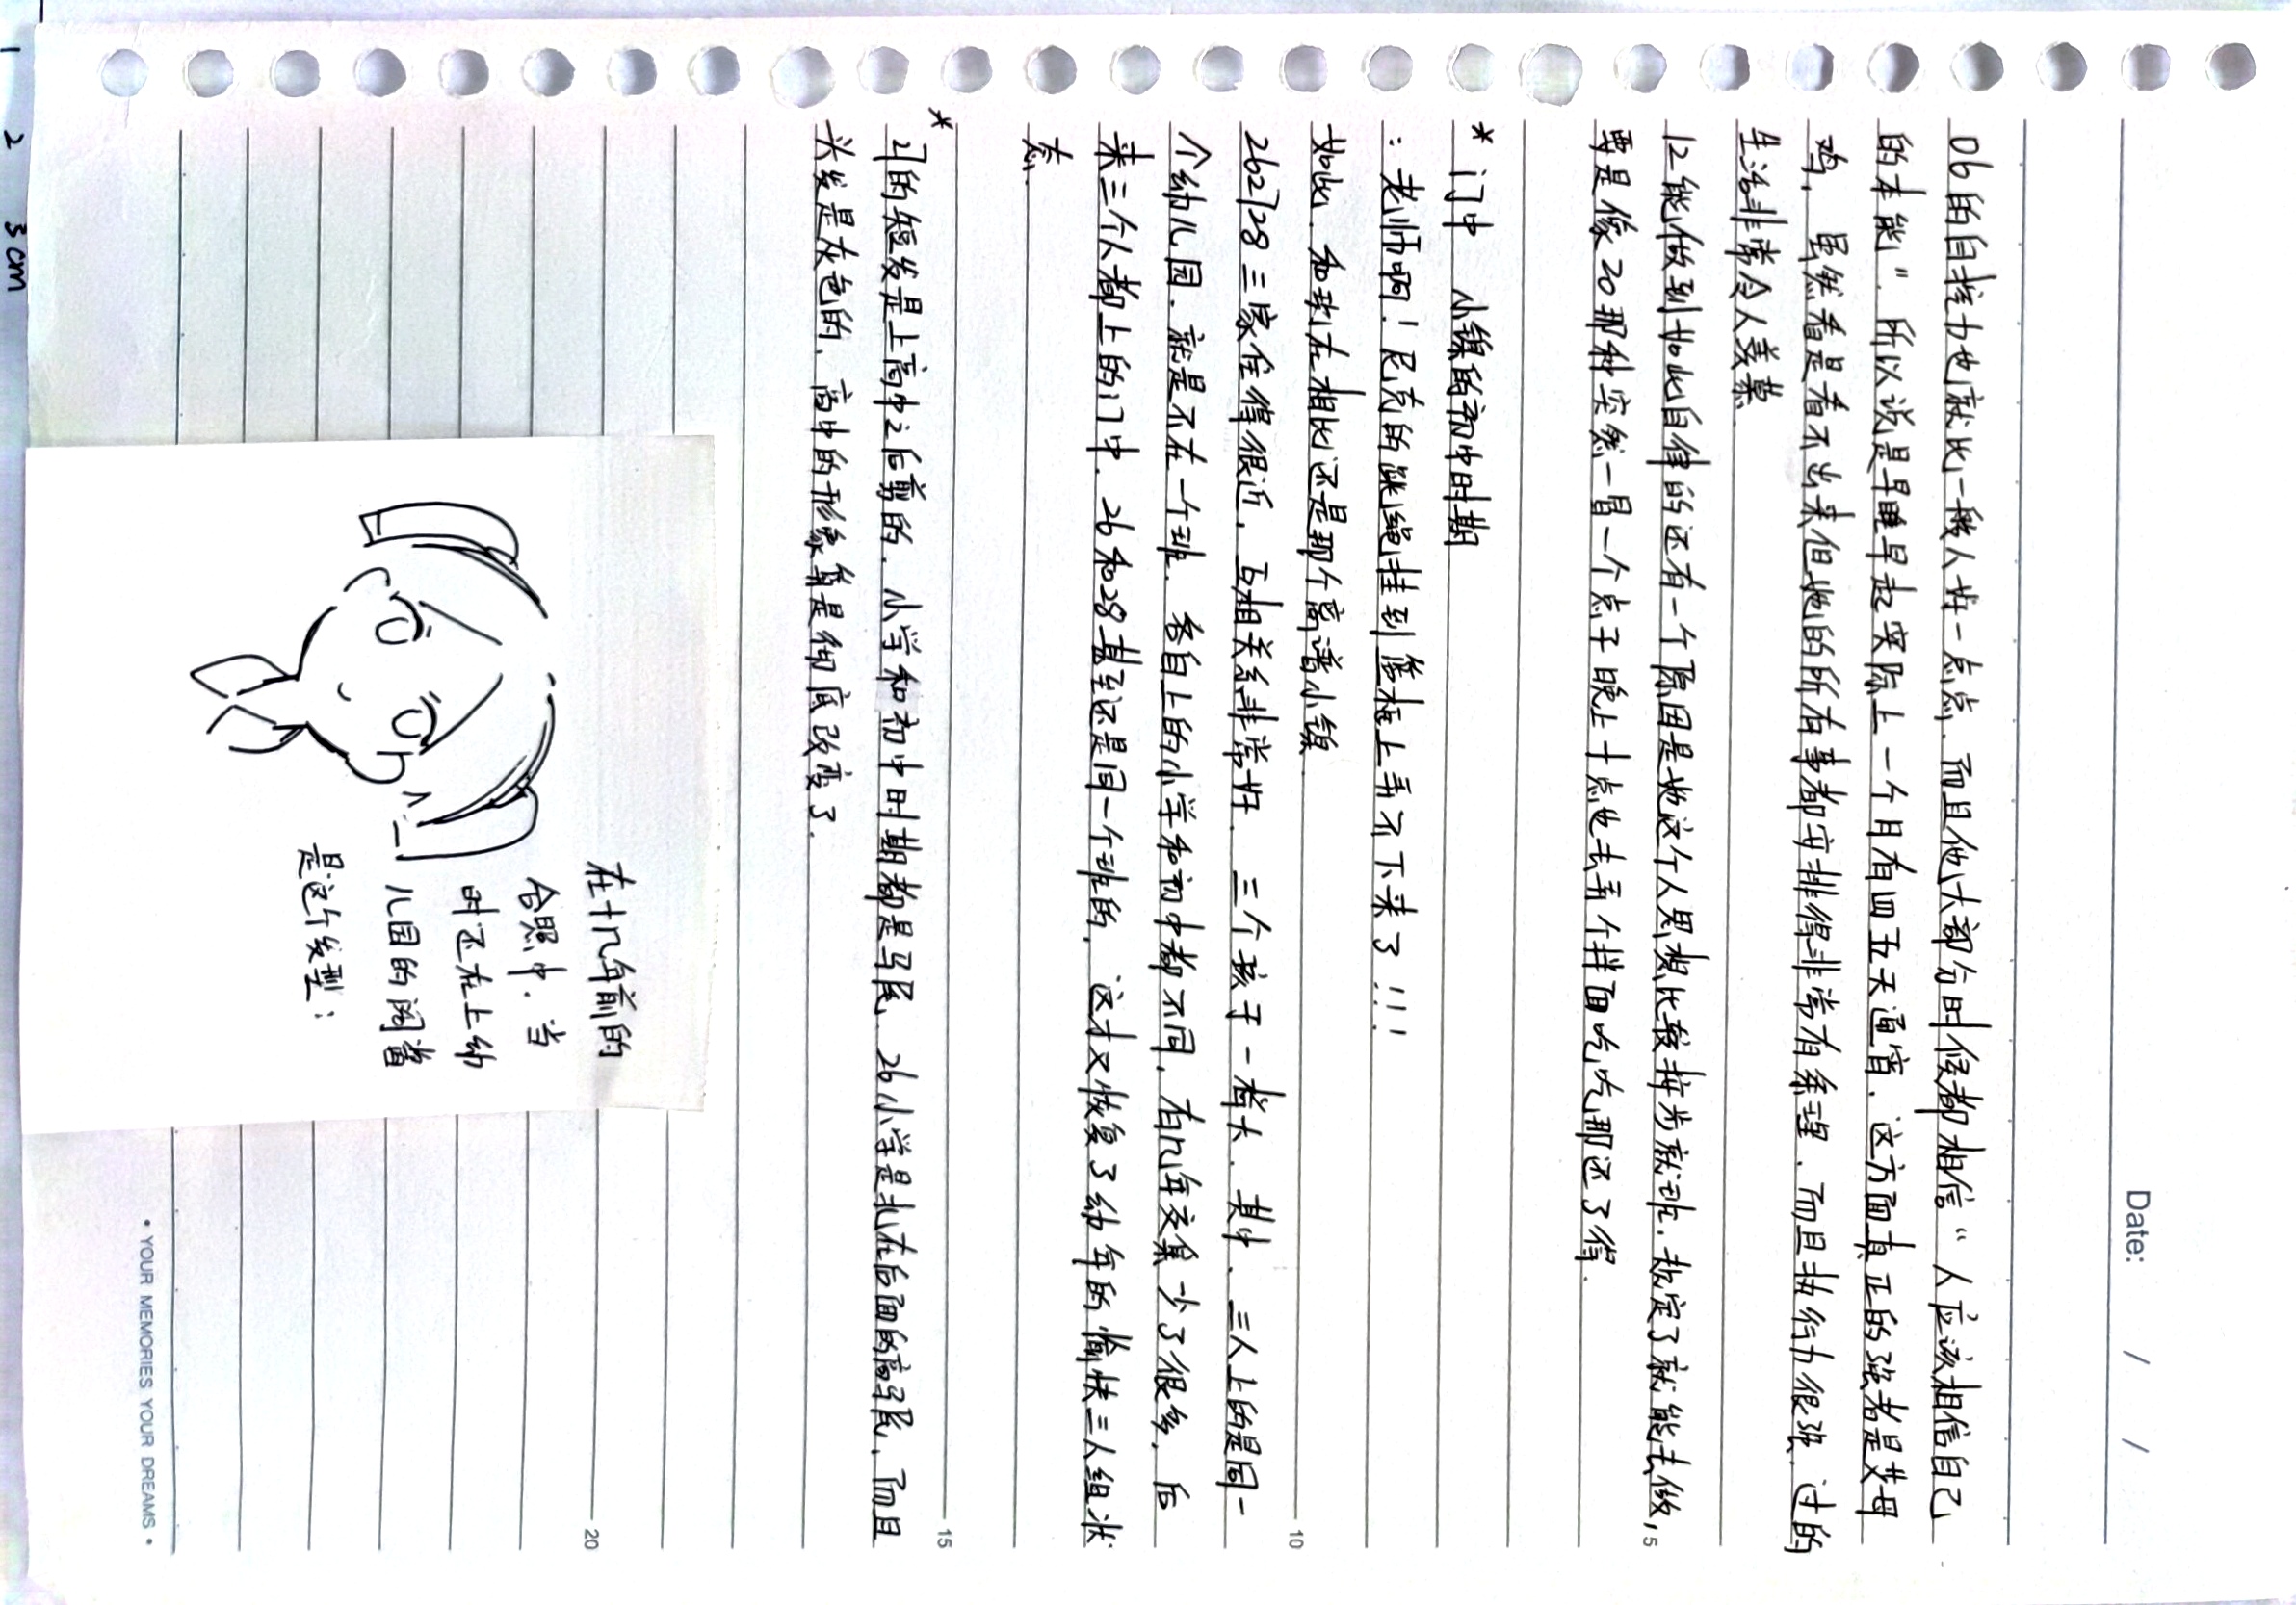 Date: / /
06的自控力也就比一般人好一点点.而且他大部分时候都相信“人应该相信自己
的本能”.所以说是早睡早起实际上一个月有四五天通宵.这方面真正的强者是艾母
鸡.虽然看是看不出来但她的所有事都安排得非常有条理.而且执行力很强.过的
生活非常令人羡慕.
12能做到如此自律的还有一个原因是她这个人思想比较进步就班.敲定了就能去做,
要是像20那种突然一冒一个点子晚上十点也去弄个拌面吃吃那还了得.
* 门中 小镍的初中时期
:老师啊!尼克的跳绳挂到篮框上弄不下来了!!!
如此.和现在相比还是那个离谱小镍
262728三家住得很近.互相关系非常好.三个孩子一档大.其中.三人上的是同一
个幼儿园.就是不在一个班.各自上的小学和初中都不同.有几年交集少了很多.后
来三个人都上的门中.26和28甚至还是同一个班的.这才又恢复了幼年的愉快三人组状
态.
*
27的短发是上高中之后剪的.小学和初中时期都是马尾.26小学是扎在后面的高马尾.而且
头发是灰色的.高中的形象算是彻底改变了.
在十几年前的
合照中.当
时还在上幼
儿园的阔酱
是这个发型:
5
10
15
20
• YOUR MEMORIES YOUR DREAMS •
1 2 3cm